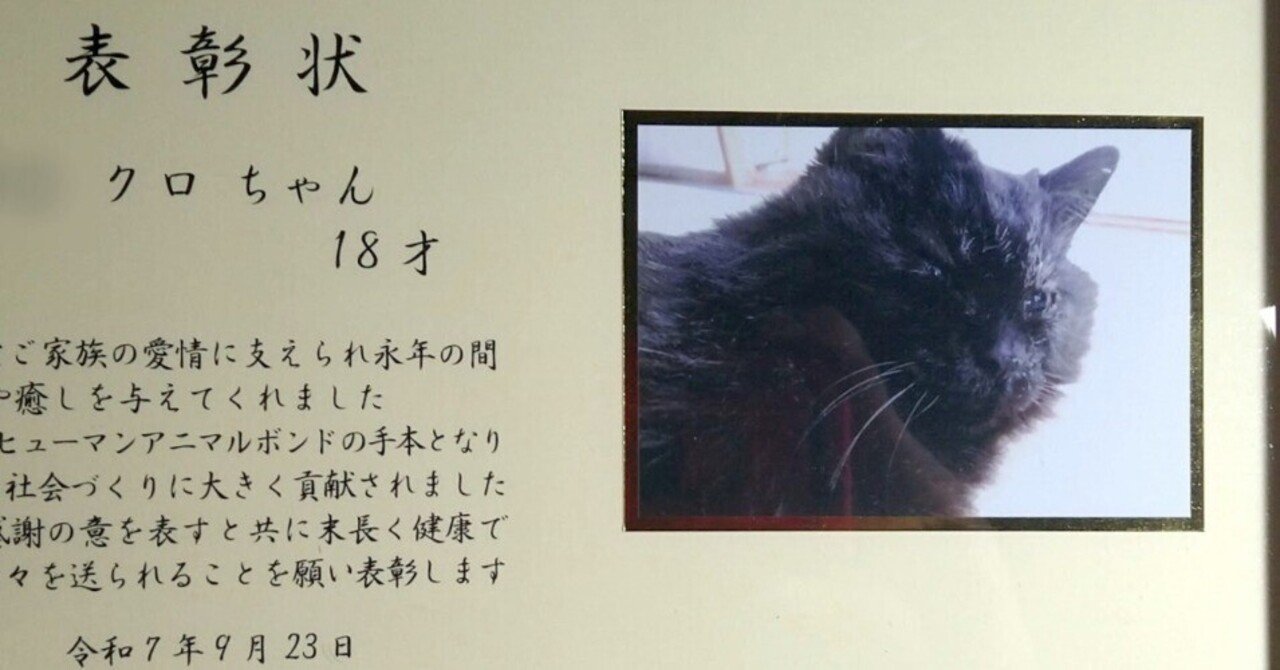 表彰状
クロ ちゃん
18 才
ご家族の愛情に支えられ永年の間
癒しを与えてくれました
ヒューマンアニマルボンドの手本となり
社会づくりに大きく貢献されました
謝の意を表すと共に末長く健康で
々を送られることを願い表彰します
令和7年9月23日